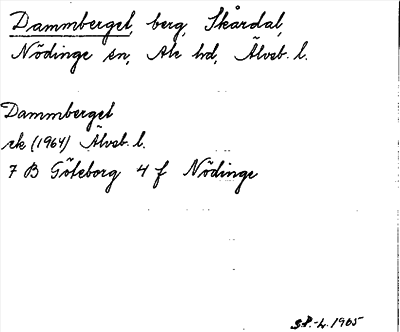 Dammberget, berg, Skårdal,
Nödinge sn, Ale hd, Älvsb. l.
Dammberget
ek (1964) Älvsb. l.
7 B Göteborg 4 f Nödinge
1965